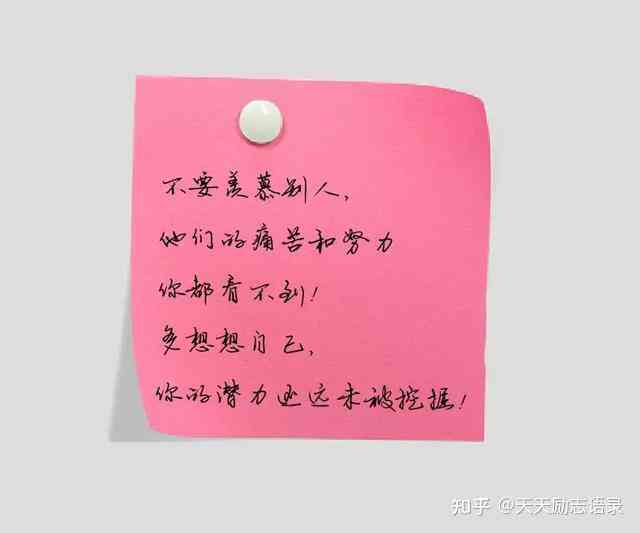 不要羡慕别人,
他们的痛苦和努力
你都看不到!
多想想自己,
你的潜力还远未被挖掘!
知乎 @天天励志语录